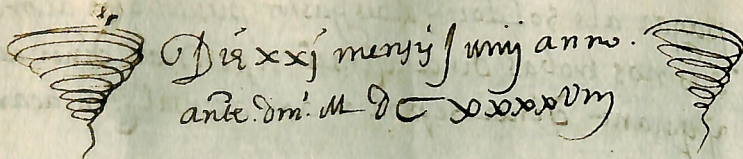 Die xxj mensij Junij anno.
ante. dm̄. M d C xxxxviij